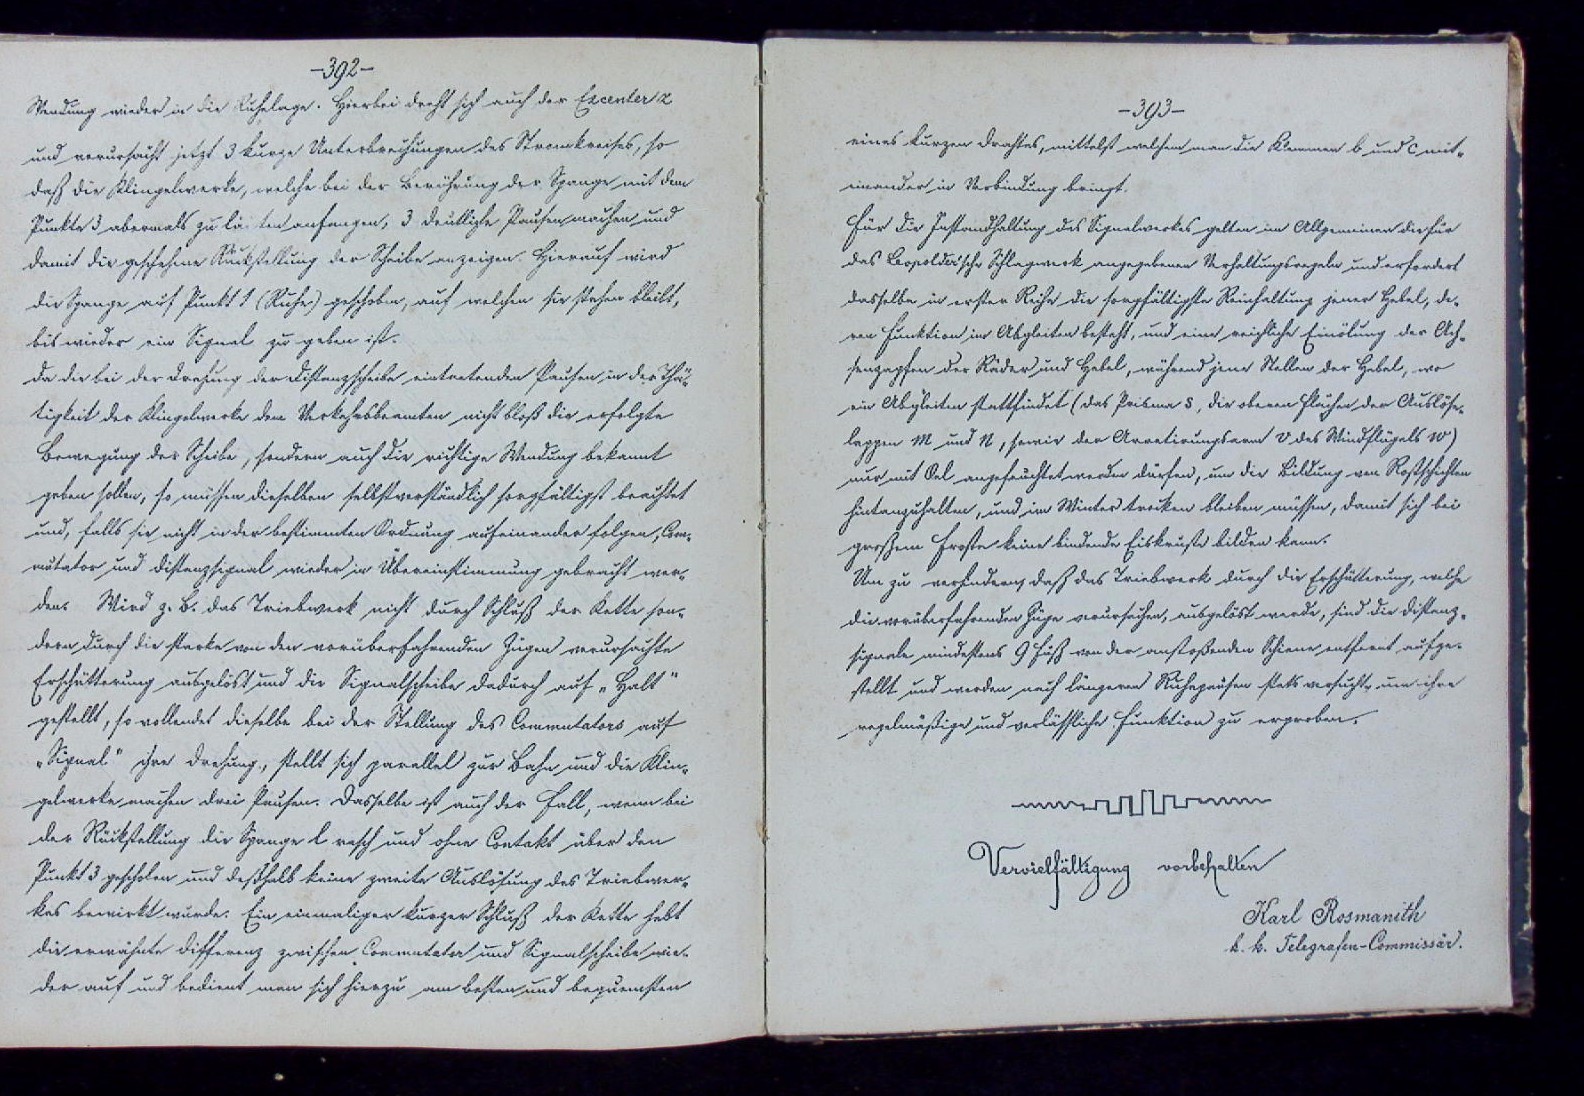 -392-
Wendung wieder in die Ruhelage. Hierbei dreht sich auch der Excenter x
und verursacht jetzt 3 kurze Unterbrechungen des Stromkreises, so
daß die Klingelwerke, welche bei der Berührung der Spange mit dem
Punkte 3 abermals zu läuten anfangen, 3 deutliche Pausen machen und
damit die geschehene Rückstellung der Scheibe anzeigen. Hierauf wird
die Spange auf Punkt 1 (Ruhe) geschoben, auf welchem sie stehen bleibt,
bis wieder ein Signal zu geben ist.
Da die bei der Drehung der Distanzscheibe eintretenden Pausen in der Thä-
tigkeit der Klingelwerke dem Verkehrsbeamten nicht bloß die erfolgte
Bewegung der Scheibe, sondern auch die richtige Wendung bekannt
geben sollen, so müssen dieselben selbstverständlich sorgfältigst beachtet
und, falls sie nicht in der bestimmten Ordnung aufeinander folgen, Com-
mutator und Distanzsignal wieder in Übereinstimmung gebracht wer-
den. Wird z. B. das Triebwerk nicht durch Schluß der Kette son-
dern durch die starke von den vorüberfahrenden Zügen verursachte
Erschütterung ausgelöst und die Signalscheibe dadurch auf „Halt"
gestellt, so vollendet dieselbe bei der Stellung des Commutators auf
„Signal" ihre Drehung, stellt sich parallel zur Bahn und die Klin-
gelwerke machen drei Pausen. Dasselbe ist auch der Fall, wenn bei
der Rückstellung die Spange l rasch und ohne Contakt über den
Punkt 3 geschoben und deßhalb keine zweite Auslösung des Triebwer-
kes bewirkt wurde. Ein einmaliger kurzer Schluß der Kette hebt
die erwähnte Differenz zwischen Commutator und Signalscheibe wie-
der auf und bedient man sich hierzu am besten und bequemsten
-393-
eines kurzen Drahtes, mittelst welchem man die Klemmen b und c mit-
einander in Verbindung bringt.
Für die Instandhaltung des Signalwerkes gelten im Allgemeinen die für
das Leopolder'sche Schlagwerk angegebenen Verhaltungsregeln und erfordert
dasselbe in erster Reihe die sorgfältigste Reinhaltung jener Hebel, de-
ren Funktion im Abgleiten besteht, und eine reichliche Einölung der Ach-
senzapfen der Räder und Hebel, während jene Stellen der Hebel, wo
ein Abgleiten stattfindet (das Prisma s, die oberen Flächen der Auslöse-
lappen M und N, sowie der Arretirungsarm v des Windflügels w)
nur mit Oel angefeuchtet werden dürfen, um die Bildung von Rostschichten
hintanzuhalten, und im Winter trocken bleiben müssen, damit sich bei
großem Froste keine bindende Eiskruste bilden kann.
Um zu verhindern, daß das Triebwerk durch die Erschütterung, welche
die vorüberfahrenden Züge verursachen, ausgelöst werde, sind die Distanz-
signale mindestens 9 Fuß von der anstoßenden Schiene entfernt aufge-
stellt und werden nach längeren Ruhepausen stets versucht, um ihre
regelmäßige und verlässliche Funktion zu erproben.
Vervielfältigung vorbehalten
Karl Rosmanith
k. k. Telegrafen-Commissär.